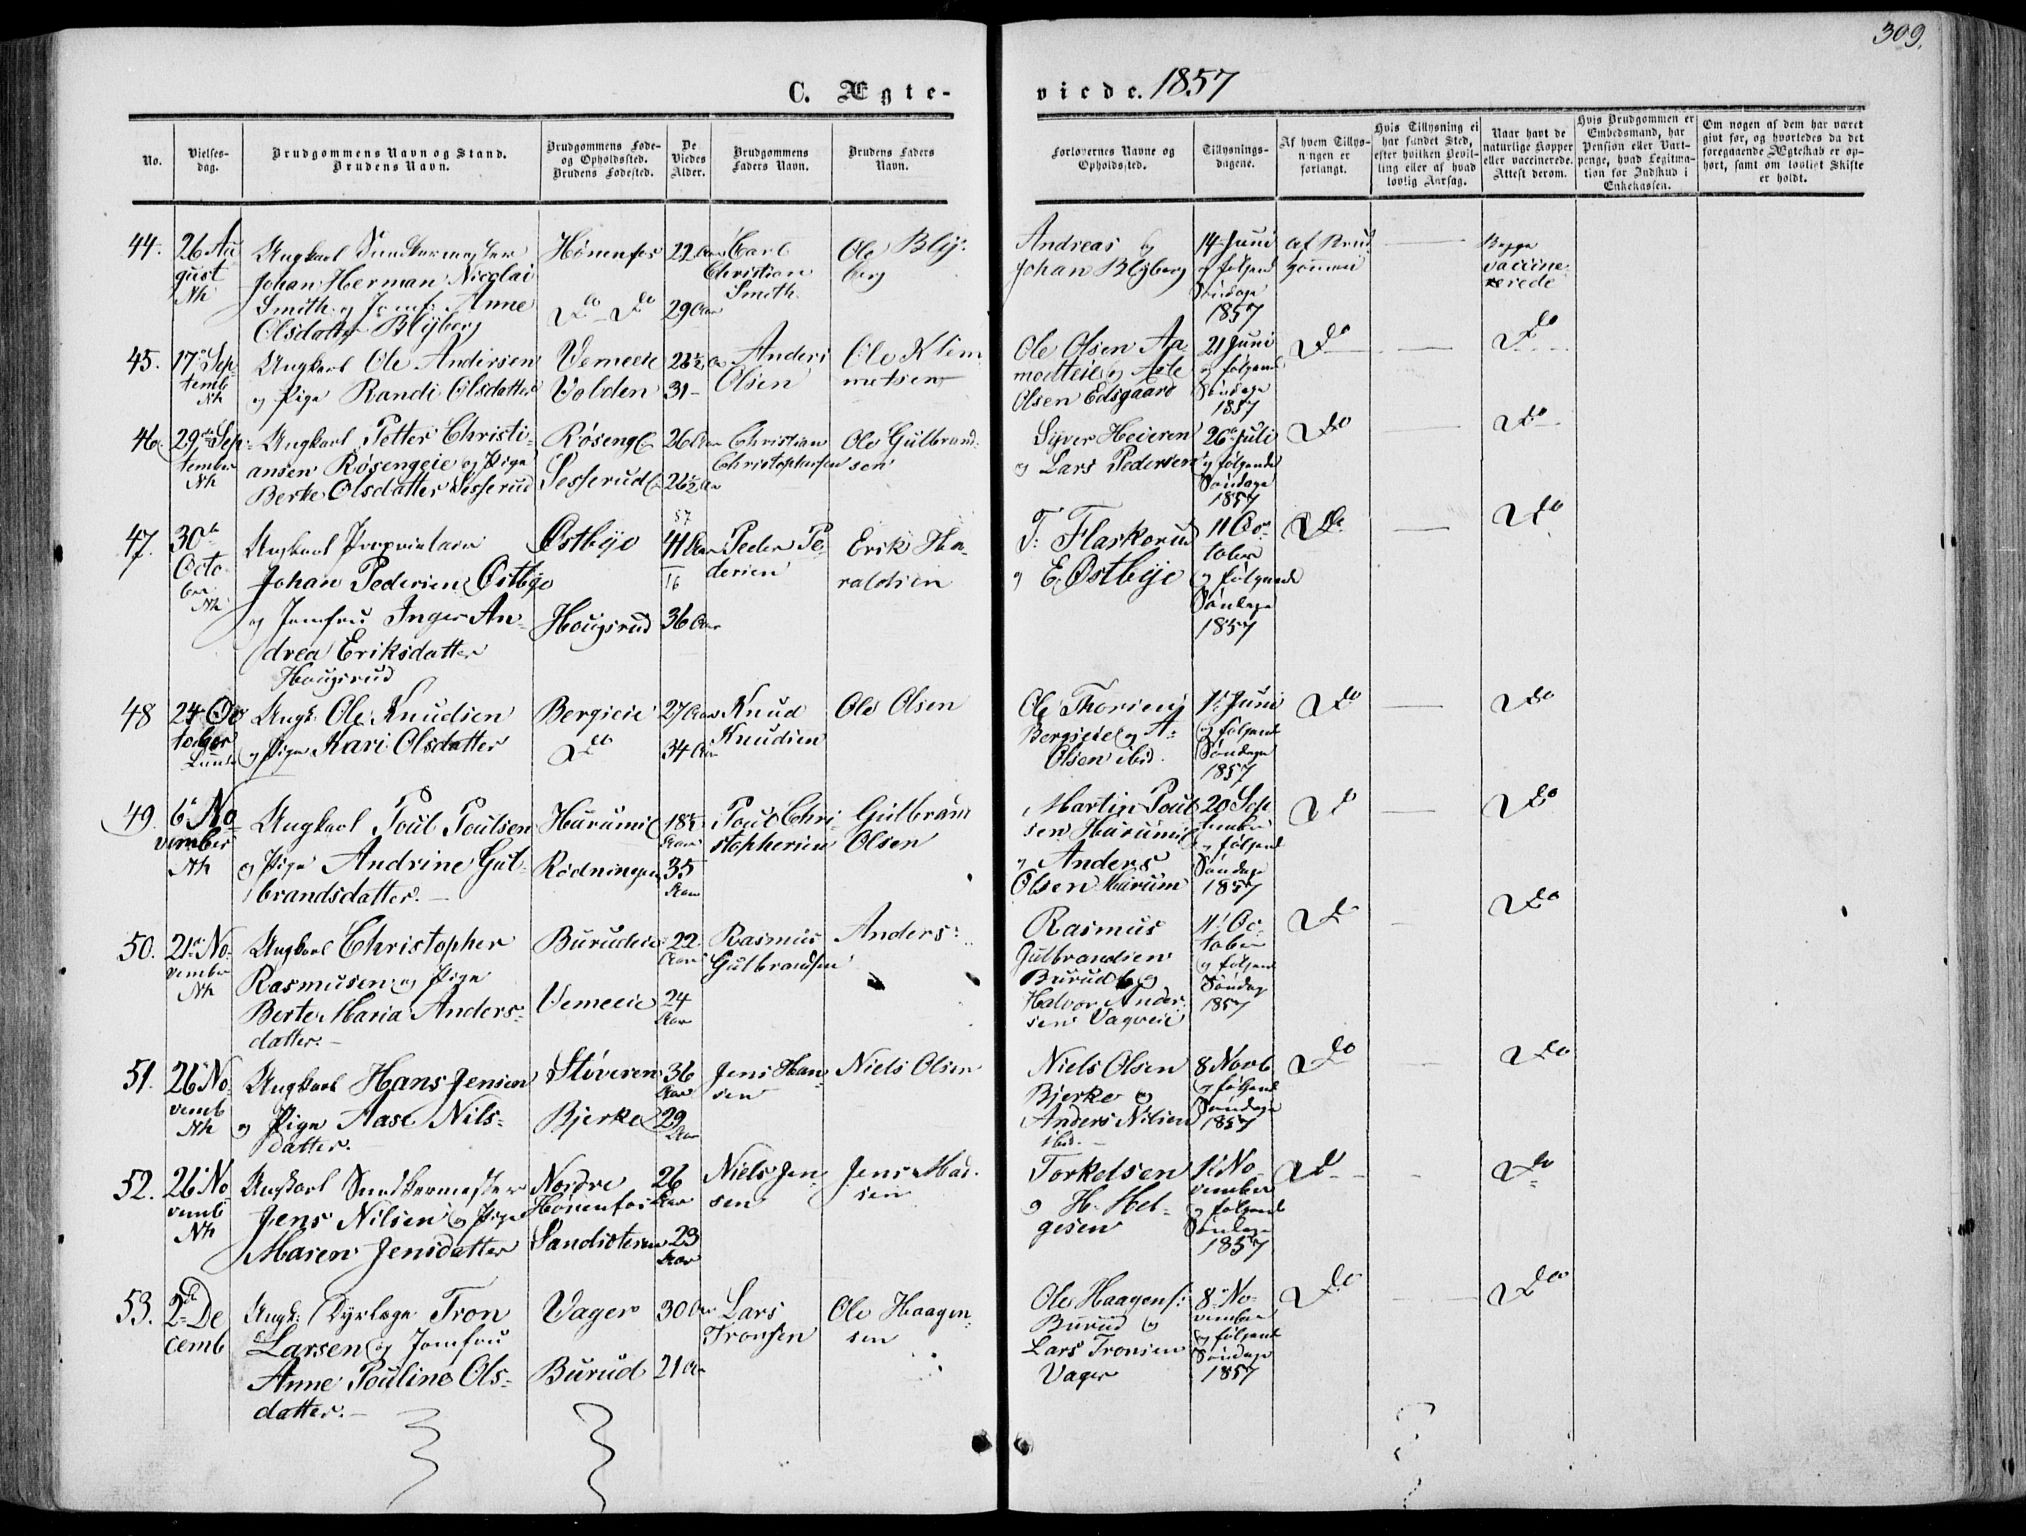 309.
C. Ægte-
viede. 1857
No.
Vielses-
dag.
Brudgommens Navn og Stand.
Brudens Navn.
Brudgommens Føde-
og Opholdssted.
Brudens Fødested.
De
Viedes
Alder.
Brudgommens
Faders Navn.
Brudens Faders
Navn.
Forlovernes Navne og
Opholdssted.
Tillysnings-
dagene.
Af hvem Tillys-
ningen er
forlangt.
Hvis Tillysning ei
har fundet Sted,
efter hvilken Bevil-
ling eller af hvad
lovlig Aarsag.
Naar havt de
naturlige Kopper
eller vaccinerede.
Attest derom.
Hvis Brudgommen er
Embedsmand, har
Pension eller Vart-
penge, hvad Legitima-
tion for Indskud i
Enkekassen.
Om nogen af dem har været
givt før, og hvorledes da det
foregaaende Ægteskab er op-
hørt, samt om lovligt Skifte
er holdt.
44.
26 Au
gust
Nh
Ungkarl
Johan Herman Nicolai
Smith og Jomf. Anne
Olsdatter Blyberg
Hönenfos
Do Do
22 Aar
29 Aar
Carl
Christian
Smith
Ole Bly-
berg
Andreas og
Johan Blyberg
14 Juni
og følgend
Søndage
1857
af Brud
gommen
Begge
vaccine-
rerede
45.
17 Sep-
temb
Nh
Ungkarl Ole Andersen
og Pige Randi Olsdatter
Vemeeie
Volden
31
Anders
Olsen
Ole Klem
metsen
Ole Olsen Aa
modteie og Asle
Olsen Edsgaard
21 Juni
og følgend
Søndage
1857
Do
Do
46.
29 Sep-
tember
Nh
Ungkarl Petter Christi-
ansen Røsengeie og Pige
Berte Olsdatter Sesserud
Røseng
Sesserud
26 Aar
26½ Aar
Christian
Christophersen
Ole Gulbrand-
sen
Syver Heieren
og Lars Pedersen
26 Juli
og følgende
Søndage
1857
Do
Do
47.
30
Octo-
ber
Nh
Ungkarl Proprietair
Johan Pedersen Østbye
og Jomfru Inger An-
drea Eriksdatter
Hougsrud
Østbye
Hougsrud
57
41 Aar
16
36 Aar
Peder Pe-
dersen
Erik Ha-
raldsen
T. Flaskerud
og E. Østbye
11 Oc-
tober
og følgende
Søndage
1857
Do
Do
48
24 Oc
tober
Ungk. Ole Knudsen
og Pige Kari Olsdatter
Bergseie
Do
27 Aar
34 Aar
Knud
Knudsen
Ole Olsen
Ole Thorsen
Bergseie og A-
Olsen ibid.
1 Juni
og følgend
Søndage
1857
Do
Do
49.
6 No-
vember
Nh
Ungkarl Poul Poulsen
og Pige Andrine Gul-
brandsdatter.
Rødningen
Aar
35
Aar
Poul Chri-
stophersen
Gulbrand
Olsen
Martin Poul
sen
og Anders
Olsen Harum
20 Sep
tember
og følgend
Søndage
1857
Do
Do
50.
21 No-
vember
Nh
Ungkarl Christopher
Rasmusen og Pige
Berte Maria Anders-
datter.
Vemeeie
22
Aar
24
Aar
Rasmus
Gulbrandsen
Anders
Rasmus
Gulbrandsen
Burud og
Halvor Ander-
sen
11 Oc-
tober
og følgend
Søndag
1857
Do
Do
51.
26 No-
vemb
Nh
Ungkarl Hans Jensen
og Pige Aase Nils-
datter.
Støveren
Bjerke
36
Aar
29
Aar
Jens Han-
sen
Niels Olsen
Niels Olsen
Bjerke og
Anders Nilsen
ibid.
8 Novb
og følgend
Søndage
1857
Do
Do
52.
26 No-
vemb
Nh
Ungkarl
Jens Nilsen og Pige
Maren Jensdatter
Nordre
Hönenfos
26
Aar
23
Aar
Niels Jen-
sen
Jens Mad-
sen
Torkelsen
og H. Hel-
gesen
1 No-
vember
og følgend
Søndage
1857
Do
Do
53.
2 De
cemb
Ungk. Dyrlæge Tron
Larsen og Jomfru
Anne Pouline Ols-
datter.
Vager
Burud
30 Aar
21 Aar
Lars
Tronsen
Ole Haagen-
sen
Ole Haagens.
Burud og
Lars Tronsen
Vager
8 No-
vember
og følgend
Søndage
1857
Do
Do